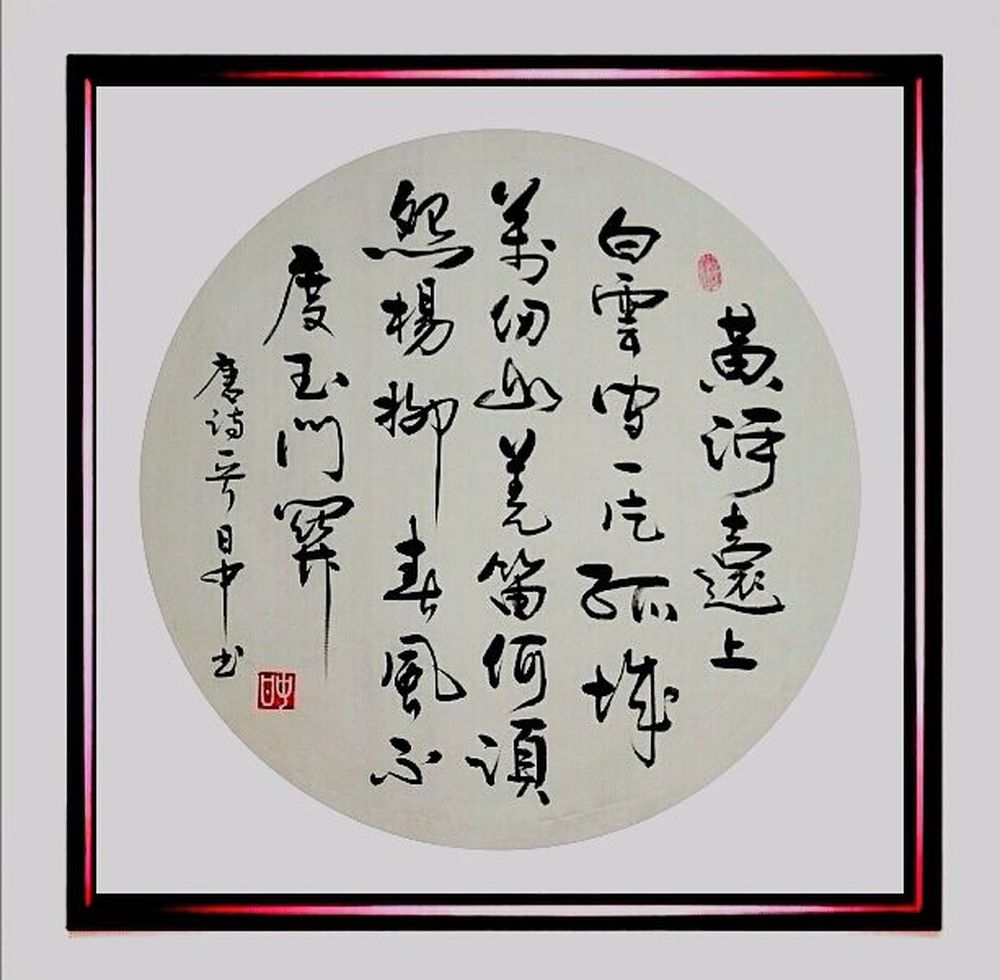 黃河遠上
白雲間一片孤城
萬仞山羌笛何須
怨楊柳春風不
度玉門關
唐詩一首日中书